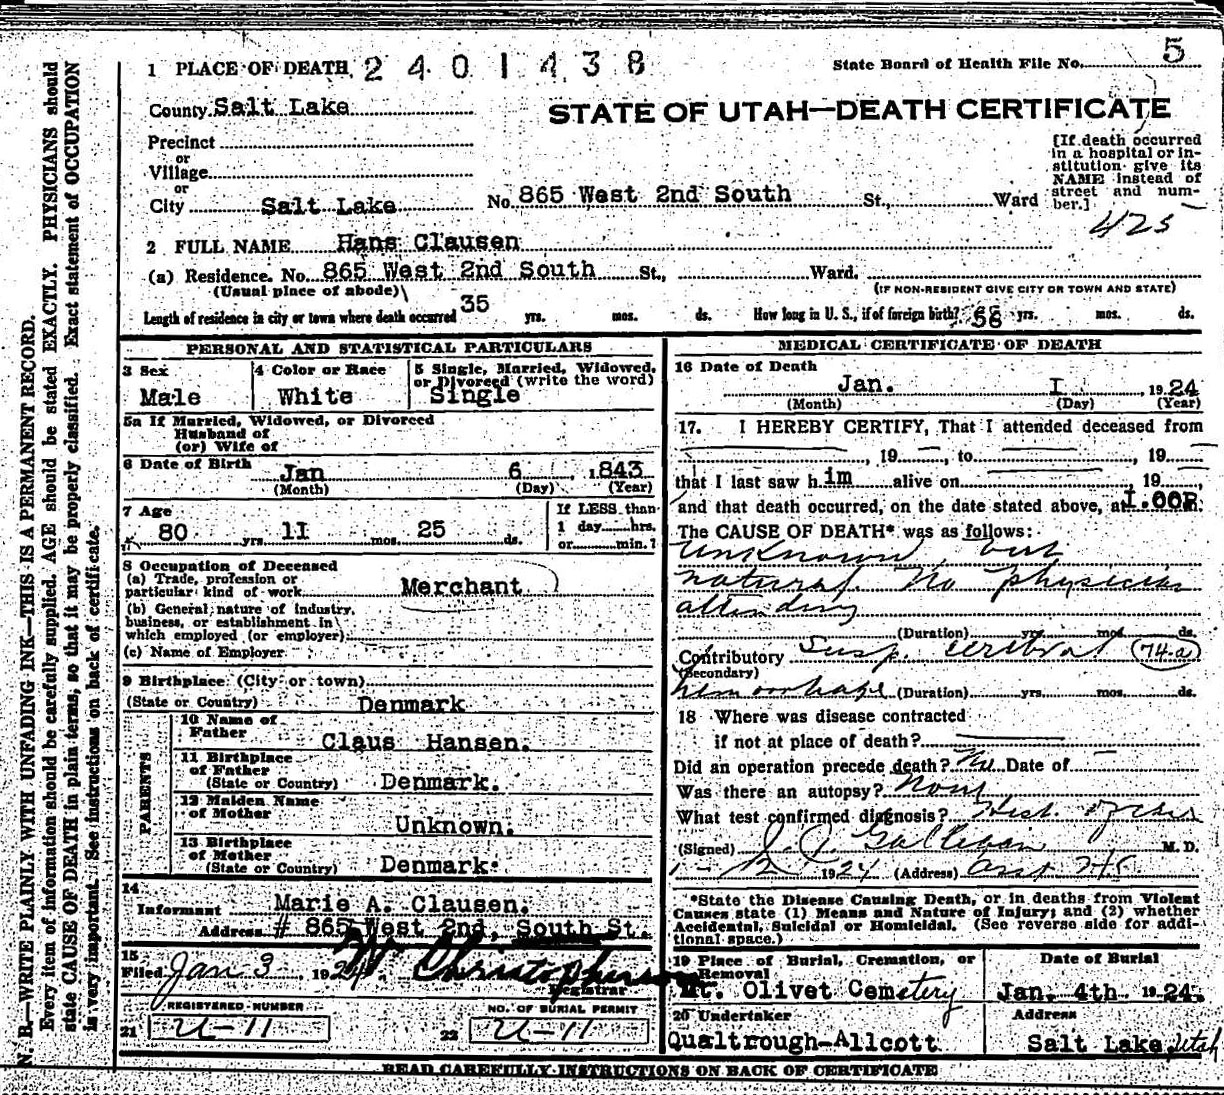 N. B.—WRITE PLAINLY WITH UNFADING INK—THIS IS A PERMANENT RECORD.
Every item of information should be carefully supplied. AGE should be stated EXACTLY. PHYSICIANS should
state CAUSE OF DEATH in plain terms, so that it may be properly classified. Exact statement of OCCUPATION
is very important. See instructions on back of certificate.
1 PLACE OF DEATH 2401438
State Board of Health File No. 5
County Salt Lake
STATE OF UTAH—DEATH CERTIFICATE
Precinct
or
Village
or
City Salt Lake No. 865 West 2nd South St., Ward
[If death occurred
in a hospital or in-
stitution give its
NAME instead of
street and num-
ber.]
425
2 FULL NAME Hans Clausen
(a) Residence. No. 865 West 2nd South St., Ward.
(Usual place of abode)
(IF NON-RESIDENT GIVE CITY OR TOWN AND STATE)
Length of residence in city or town where death occurred 35 yrs. mos. ds. How long in U. S., if of foreign birth? 58 yrs. mos. ds.
PERSONAL AND STATISTICAL PARTICULARS
3 Sex
Male
4 Color or Race
White
5 Single, Married, Widowed,
or Divorced (write the word)
Single
5a If Married, Widowed, or Divorced
Husband of
(or) Wife of
6 Date of Birth Jan 6, 1843
(Month) (Day) (Year)
7 Age
80 yrs. 11 mos. 25 ds.
If LESS than
1 day hrs.
or min.?
8 Occupation of Deceased
(a) Trade, profession or
particular kind of work Merchant
(b) General nature of industry,
business, or establishment in
which employed (or employer)
(c) Name of Employer
9 Birthplace (City or town)
(State or Country) Denmark
PARENTS
10 Name of
Father Claus Hansen.
11 Birthplace
of Father
(State or Country) Denmark.
12 Maiden Name
of Mother Unknown.
13 Birthplace
of Mother
(State or Country) Denmark.
14
Informant Marie A. Clausen.
Address # 865 West 2nd, South St.
15
Filed Jan 3 1924 Christopherson
Registrar
REGISTERED NUMBER
21 U-11
NO. OF BURIAL PERMIT
22 U-11
MEDICAL CERTIFICATE OF DEATH
16 Date of Death
Jan. I, 1924
(Month) (Day) (Year)
17. I HEREBY CERTIFY, That I attended deceased from
, 19 , to , 19
that I last saw him alive on , 19 ,
and that death occurred, on the date stated above, at I.00P m.
The CAUSE OF DEATH* was as follows:
Unknown, but
natural. No physician
attending
(Duration) yrs. mos. ds.
Contributory Susp. cerebral 74-a
(Secondary)
hemorrhage (Duration) yrs. mos. ds.
18 Where was disease contracted
if not at place of death?
Did an operation precede death? No Date of
Was there an autopsy? None
What test confirmed diagnosis? Hist. of case
(Signed) M. D.
1-2 1924 (Address)
*State the Disease Causing Death, or in deaths from Violent
Causes state (1) Means and Nature of Injury; and (2) whether
Accidental, Suicidal or Homicidal. (See reverse side for addi-
tional space.)
19 Place of Burial, Cremation, or
Removal
Mt. Olivet Cemetery
Date of Burial
Jan. 4th 1924.
20 Undertaker
Qualtrough-Allcott
Address
Salt Lake, Utah
READ CAREFULLY INSTRUCTIONS ON BACK OF CERTIFICATE